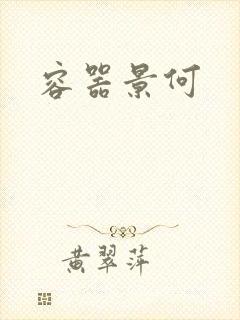 容器景何
黄翠萍